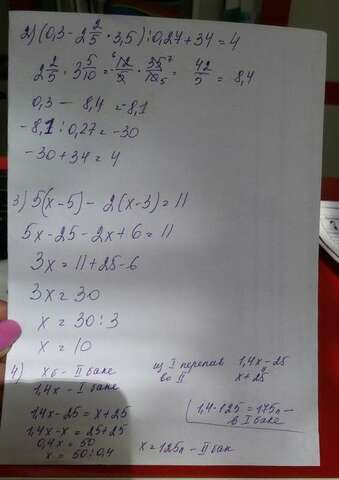 2) (0,3 - 2 2/5 · 3,5) : 0,27 + 34 = 4
2 2/5 · 3 5/10 = 12/5 · 35/10 = 42/5 = 8,4
0,3 - 8,4 = -8,1
-8,1 : 0,27 = -30
-30 + 34 = 4
3) 5(x-5) - 2(x-3) = 11
5x - 25 - 2x + 6 = 11
3x = 11 + 25 - 6
3x = 30
x = 30 : 3
x = 10
4) х б - II баке
1,4x - I баке
из I перелив 1,4x - 25
во II x + 25
1,4x - 25 = x + 25
1,4x - x = 25 + 25
0,4x = 50
x = 50 : 0,4
x = 125л - II бак
1,4 · 125 = 175л -
в I баке